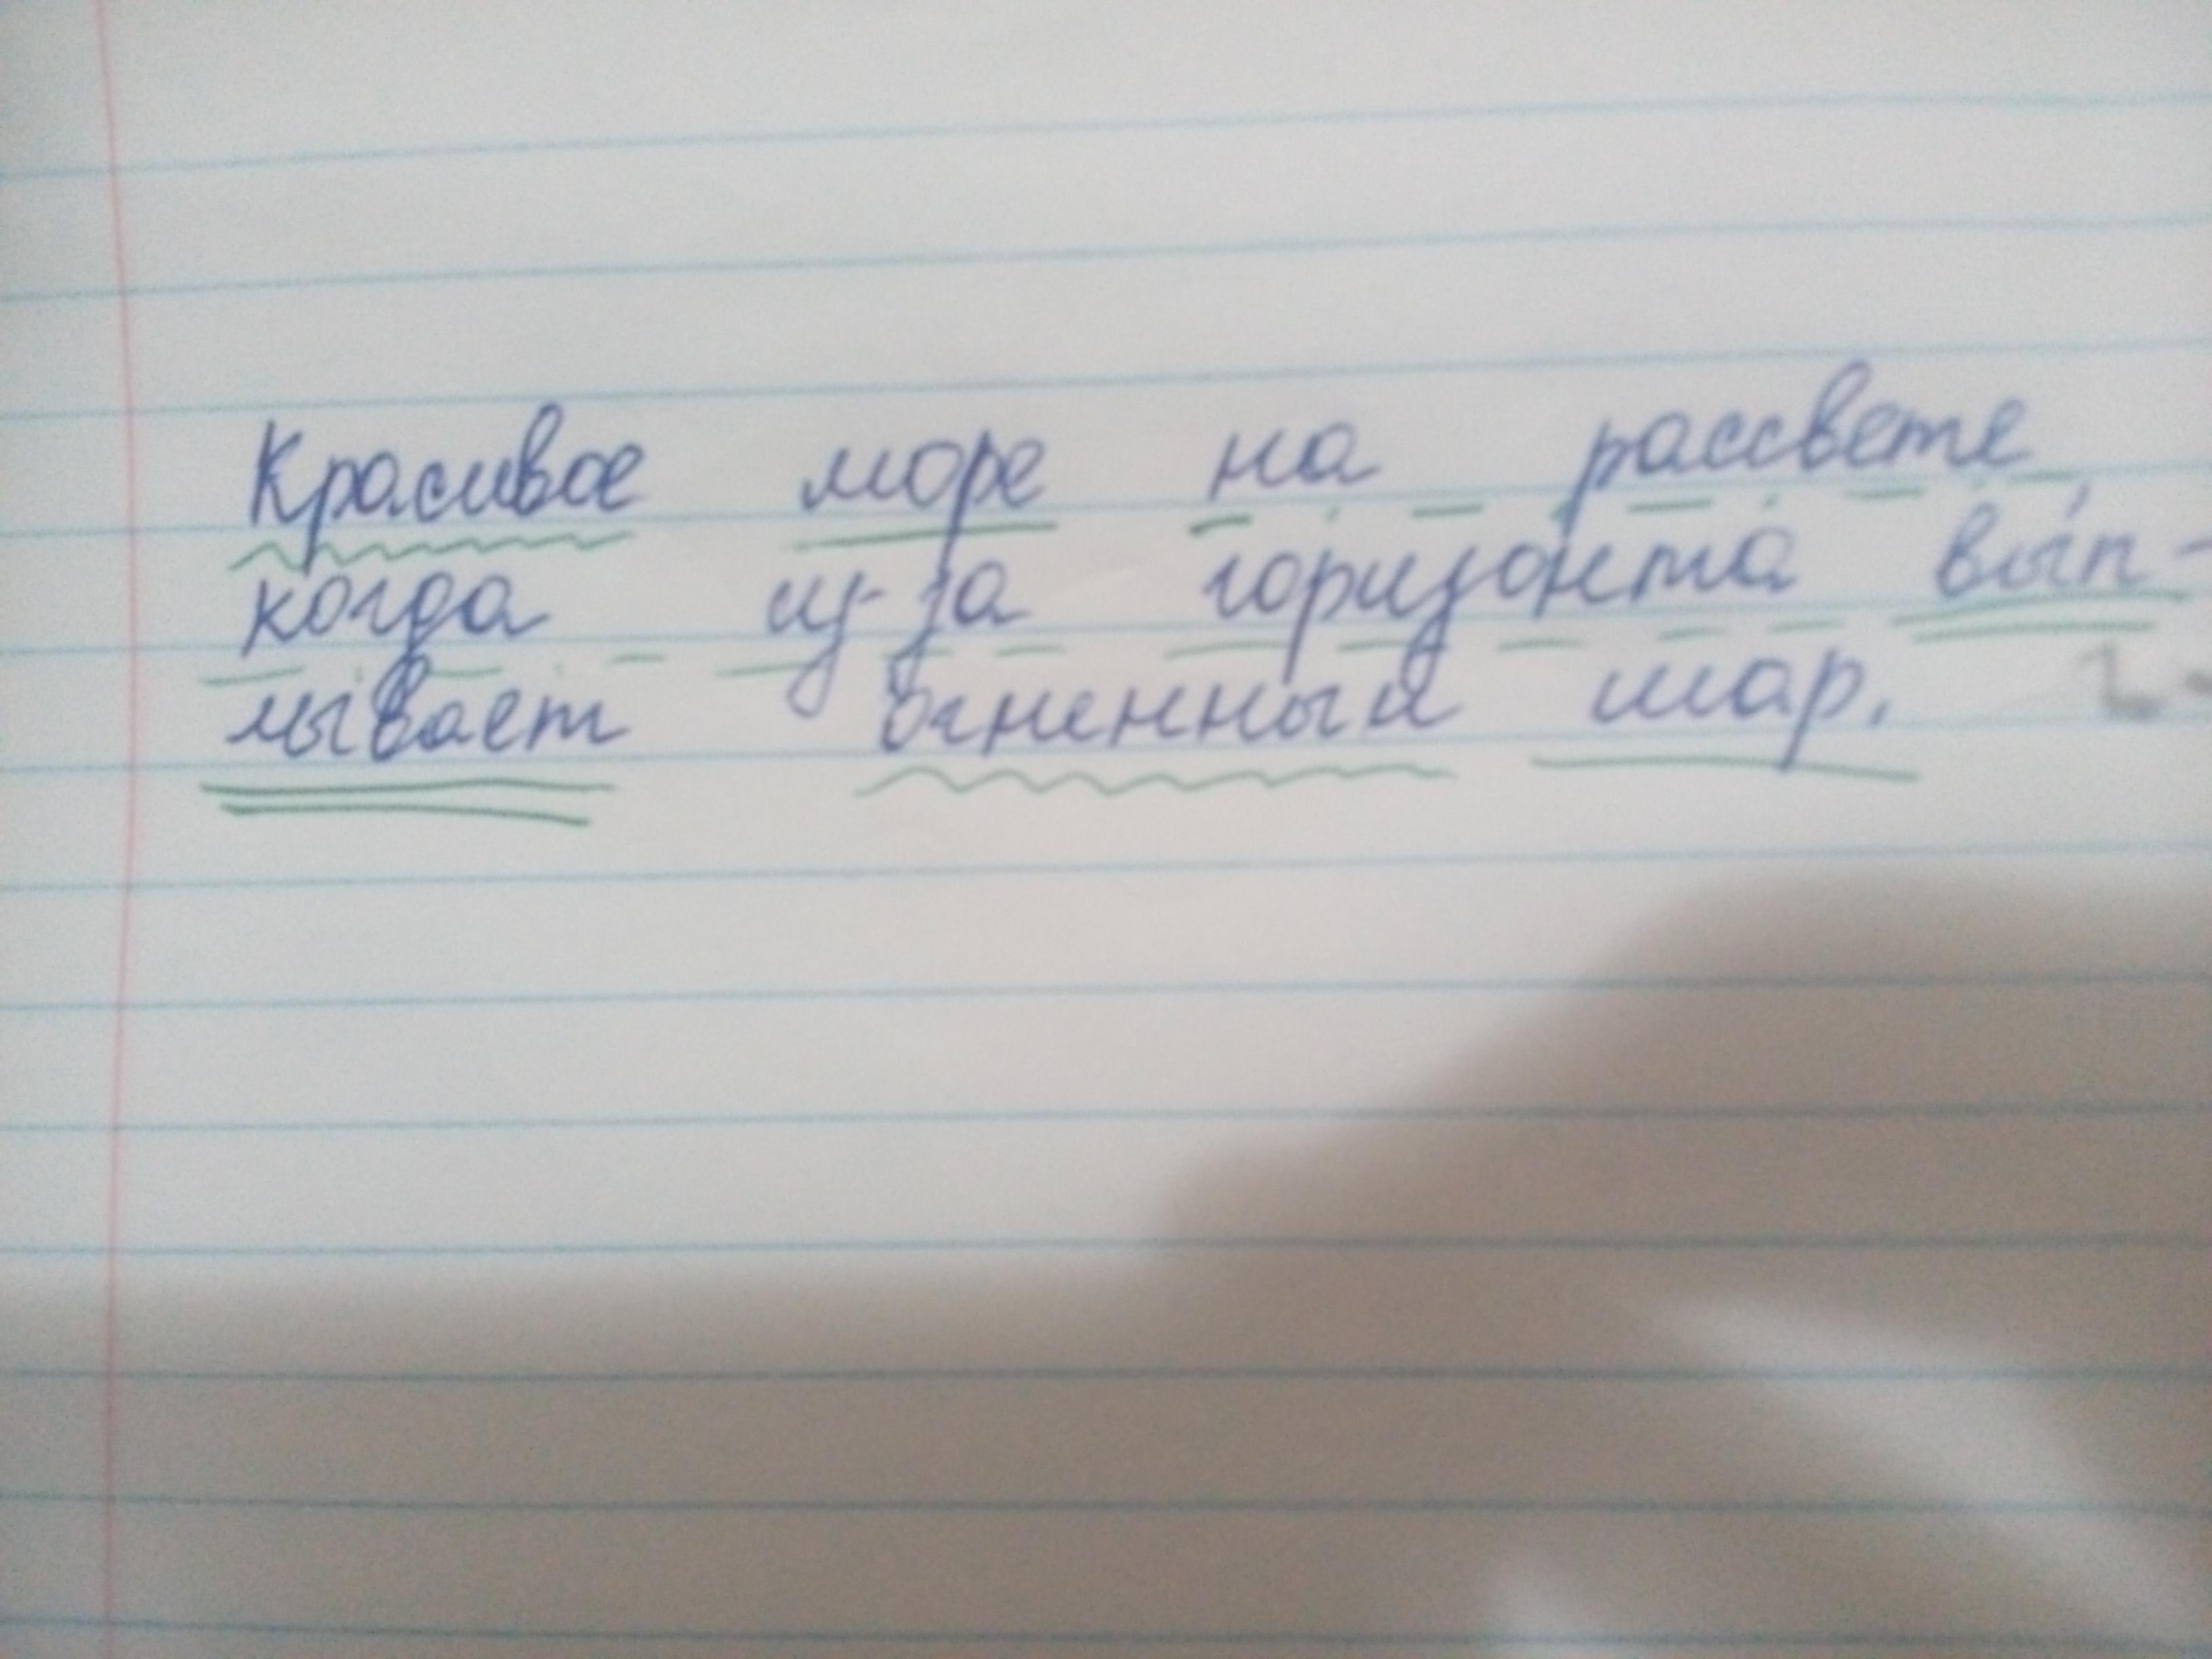 Красивое море на рассвете
когда из-за горизонта вып-
мывает огненный шар.